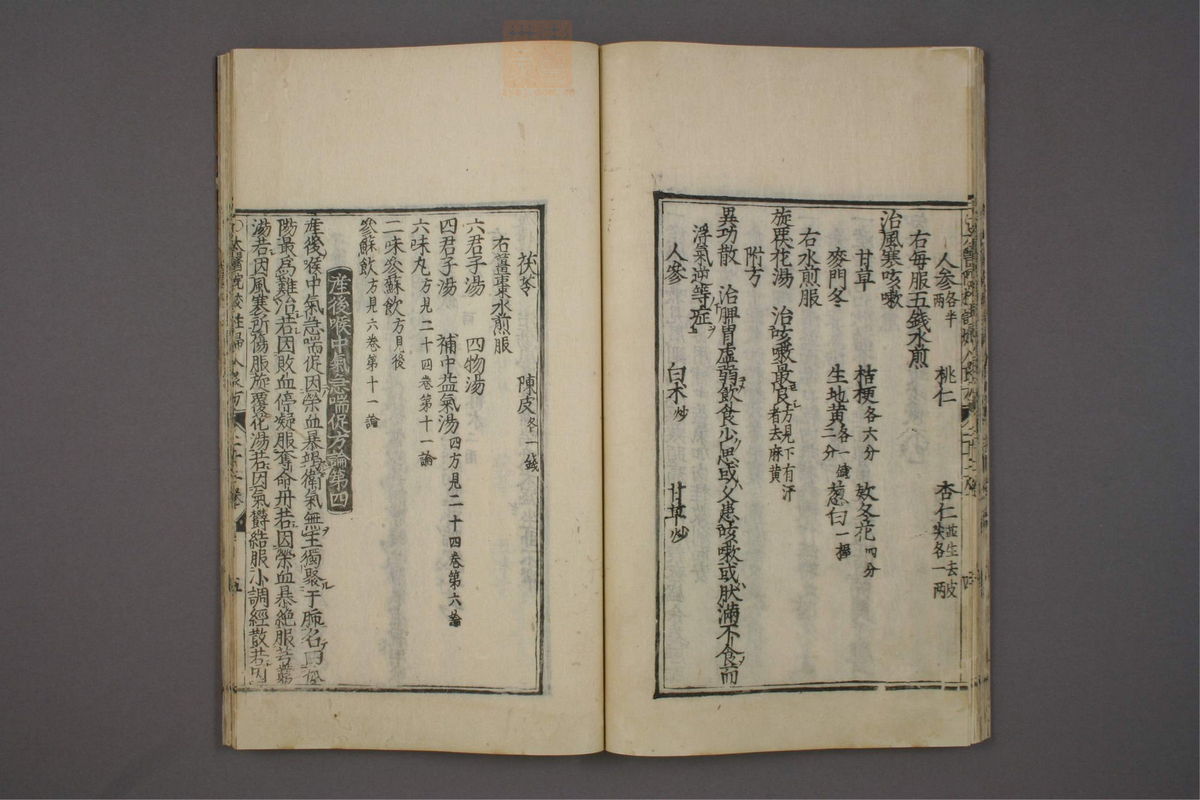 人參各半两　桃仁　杏仁並生去皮尖各一两
右每服五錢水煎
治風寒咳嗽
甘草　桔梗各六分　欵冬花四分
麥門冬　生地黄各一錢二分　葱白一握
右水煎服
旋覆花湯　治咳嗽最良方見下有汗者去麻黄
附方
異功散　治脾胃虛弱飲食少思或久患咳嗽或腹滿不食而
浮氣逆等症
人參　白术炒　甘草炒
茯苓　陳皮各一錢
右薑棗水煎服
六君子湯　四物湯
四君子湯　補中益氣湯四方見二十四卷第六論
六味丸方見二十四卷第十一論
二味參蘇飲方見後
參蘇飲方見六卷第十一論
産後喉中氣急喘促方論第四
産後喉中氣急喘促因榮血暴竭衛氣無主獨聚于肺名曰孤
陽最爲難治若因敗血停凝服奪命丹若因榮血暴絶服芎藭
湯若因風寒所傷服旋覆化湯若因氣欝結服小調經散若因
○太醫院校註婦人良方　二十二卷　五